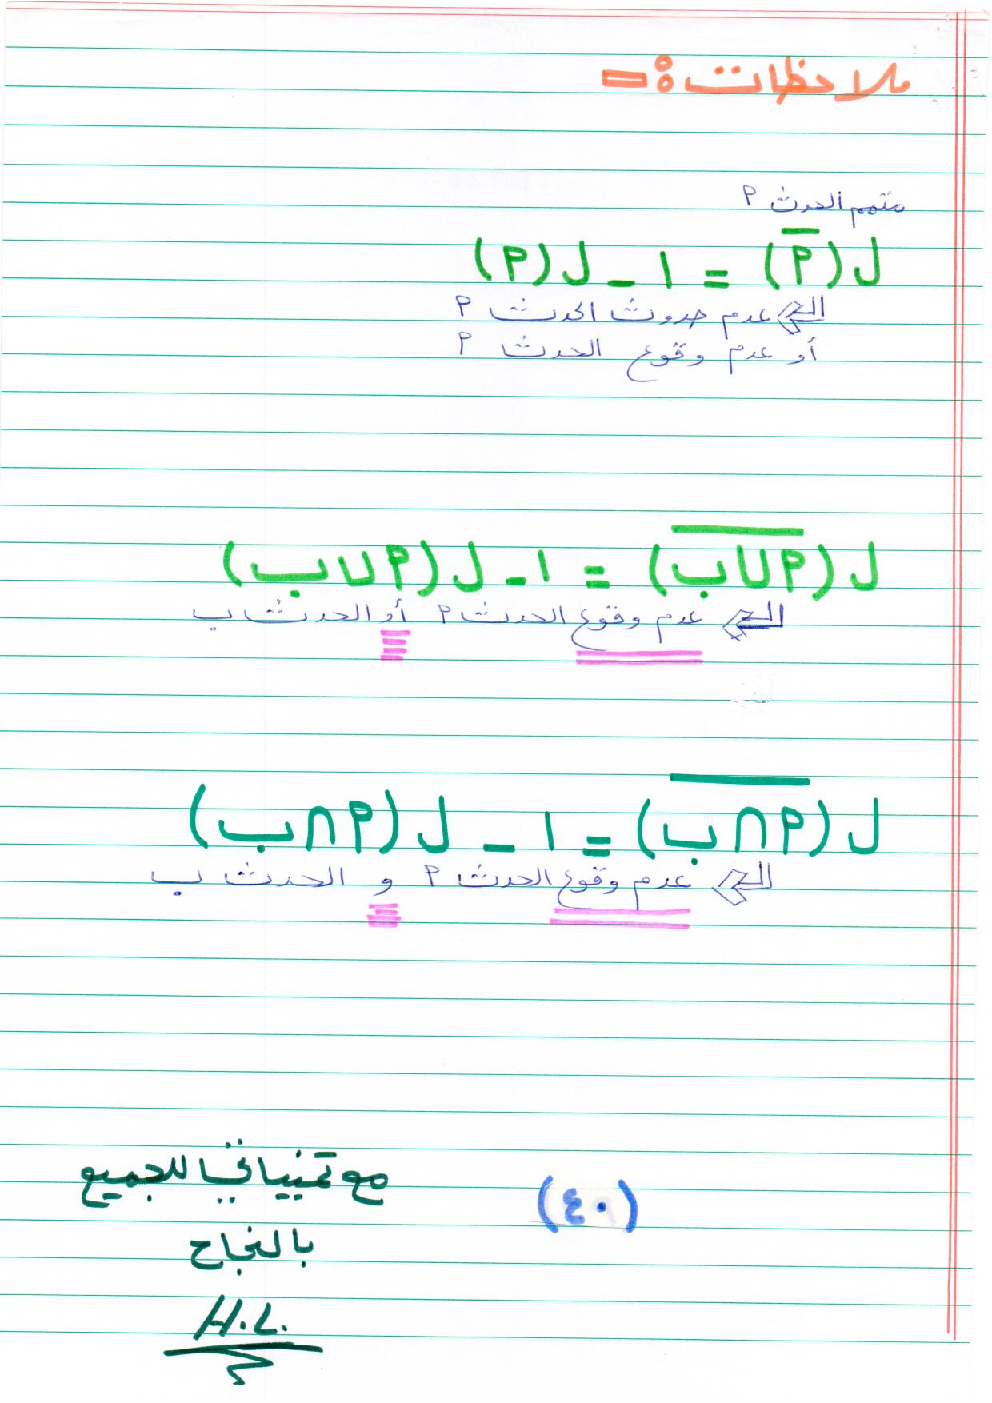 ملاحظات :-
متمم الحدث P
ل(P̅) = ١ - ل(P)
عدم حدوث الحدث P
أو عدم وقوع الحدث P
ل(P̅ ̅∪̅ ̅ب̅) = ١ - ل(P∪ب)
عدم وقوع الحدث P أو الحدث ب
ل(P̅ ̅∩̅ ̅ب̅) = ١ - ل(P∩ب)
عدم وقوع الحدث P و الحدث ب
مع تمنياتي للجميع
بالنجاح
H.L.
(٤٠)